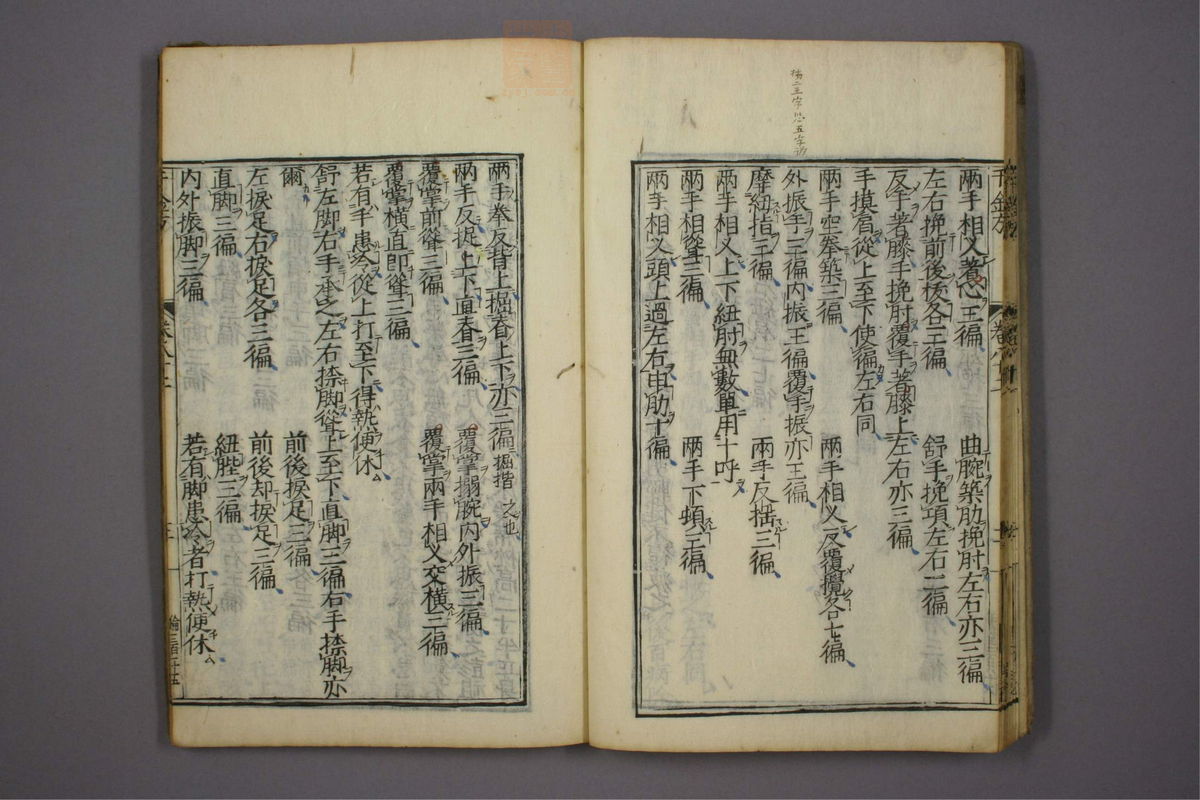 兩手相叉著心王徧　曲腕築肋挽肘左右亦三徧
左右挽前後㧞各三徧　舒手挽項左右二徧
反手著膝手挽肘覆手著膝上左右亦三徧
手摸肩從上至下使徧左右同
兩手空拳築三徧　兩手相叉反覆攪各七徧
外振手三徧内振王徧覆手振亦王徧
摩紐指三徧　兩手反摇三徧
兩手相叉上下紐肘無數單用十呼
兩手相聳三徧　兩手下頓三徧
兩手相叉頭上過左右申肋十徧
兩手拳反背上掘脊上下亦三徧 掘揩之也
兩手反捉上下直脊三徧　覆掌搦腕内外振三徧
覆掌前聳三徧　覆掌兩手相叉交橫三徧
覆掌橫直即聳三徧
若有手患冷從上打至下得熱便休
舒左脚右手承之左右捺脚從上至下直脚三徧右手捺脚亦
爾　前後捩足三徧
左捩足右捩足各三徧　前後却捩足三徧
直脚三徧　紐䏶三徧
内外振脚三徧　若有脚患冷者打熱便休
千金方　卷八十二